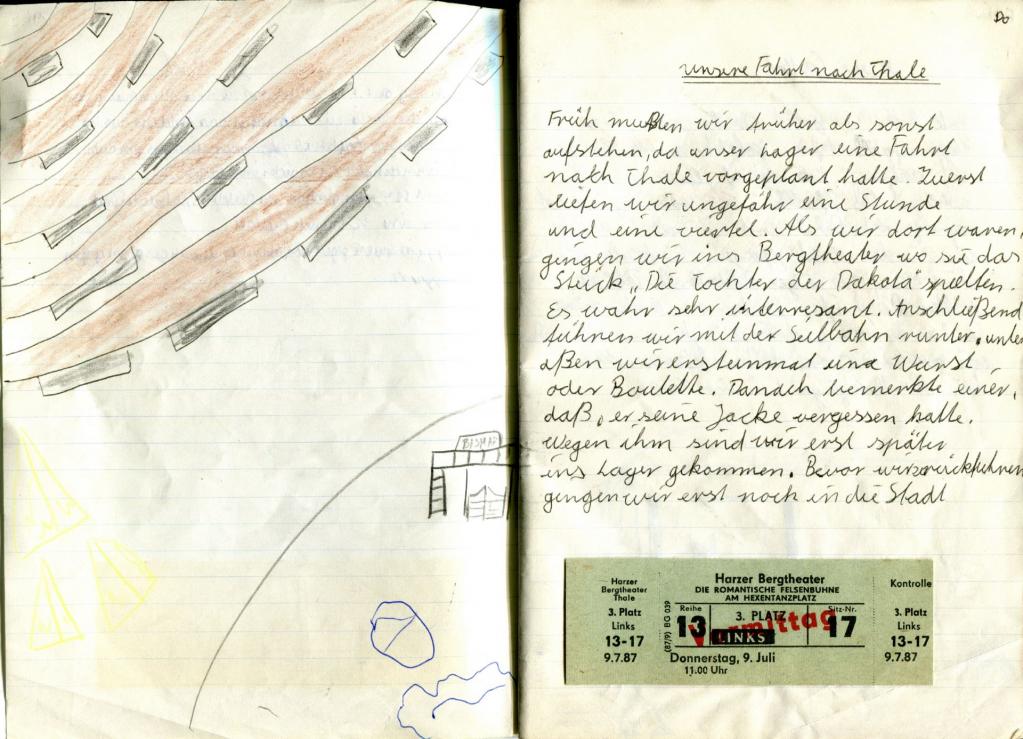 BISMAR
Do
unsere Fahrt nach Thale
Früh mußten wir früher als sonst
aufstehen, da unser Lager eine Fahrt
nach Thale vorgeplant hatte. Zuerst
liefen wir ungefähr eine Stunde
und eine viertel. Als wir dort waren,
gingen wir ins Bergtheater wo sie das
Stück „Die Tochter der Dakota" spielten.
Es wahr sehr interresant. Anschließend
fuhren wir mit der Seilbahn runter. unten
aßen wir ersteinmal eine Wurst
oder Boulette. Danach bemerkte einer,
daß er seine Jacke vergessen hatte.
Wegen ihm sind wir erst später
ins Lager gekommen. Bevor wir zurückfuhren
gingen wir erst noch in die Stadt
Harzer
Bergtheater
Thale
3. Platz
Links
13-17
9.7.87
(87/9) BG 039
Harzer Bergtheater
DIE ROMANTISCHE FELSENBÜHNE
AM HEXENTANZPLATZ
Reihe
13
3. PLATZ
LINKS
Vormittag
Sitz-Nr.
17
Donnerstag, 9. Juli
11.00 Uhr
Kontrolle
3. Platz
Links
13-17
9.7.87